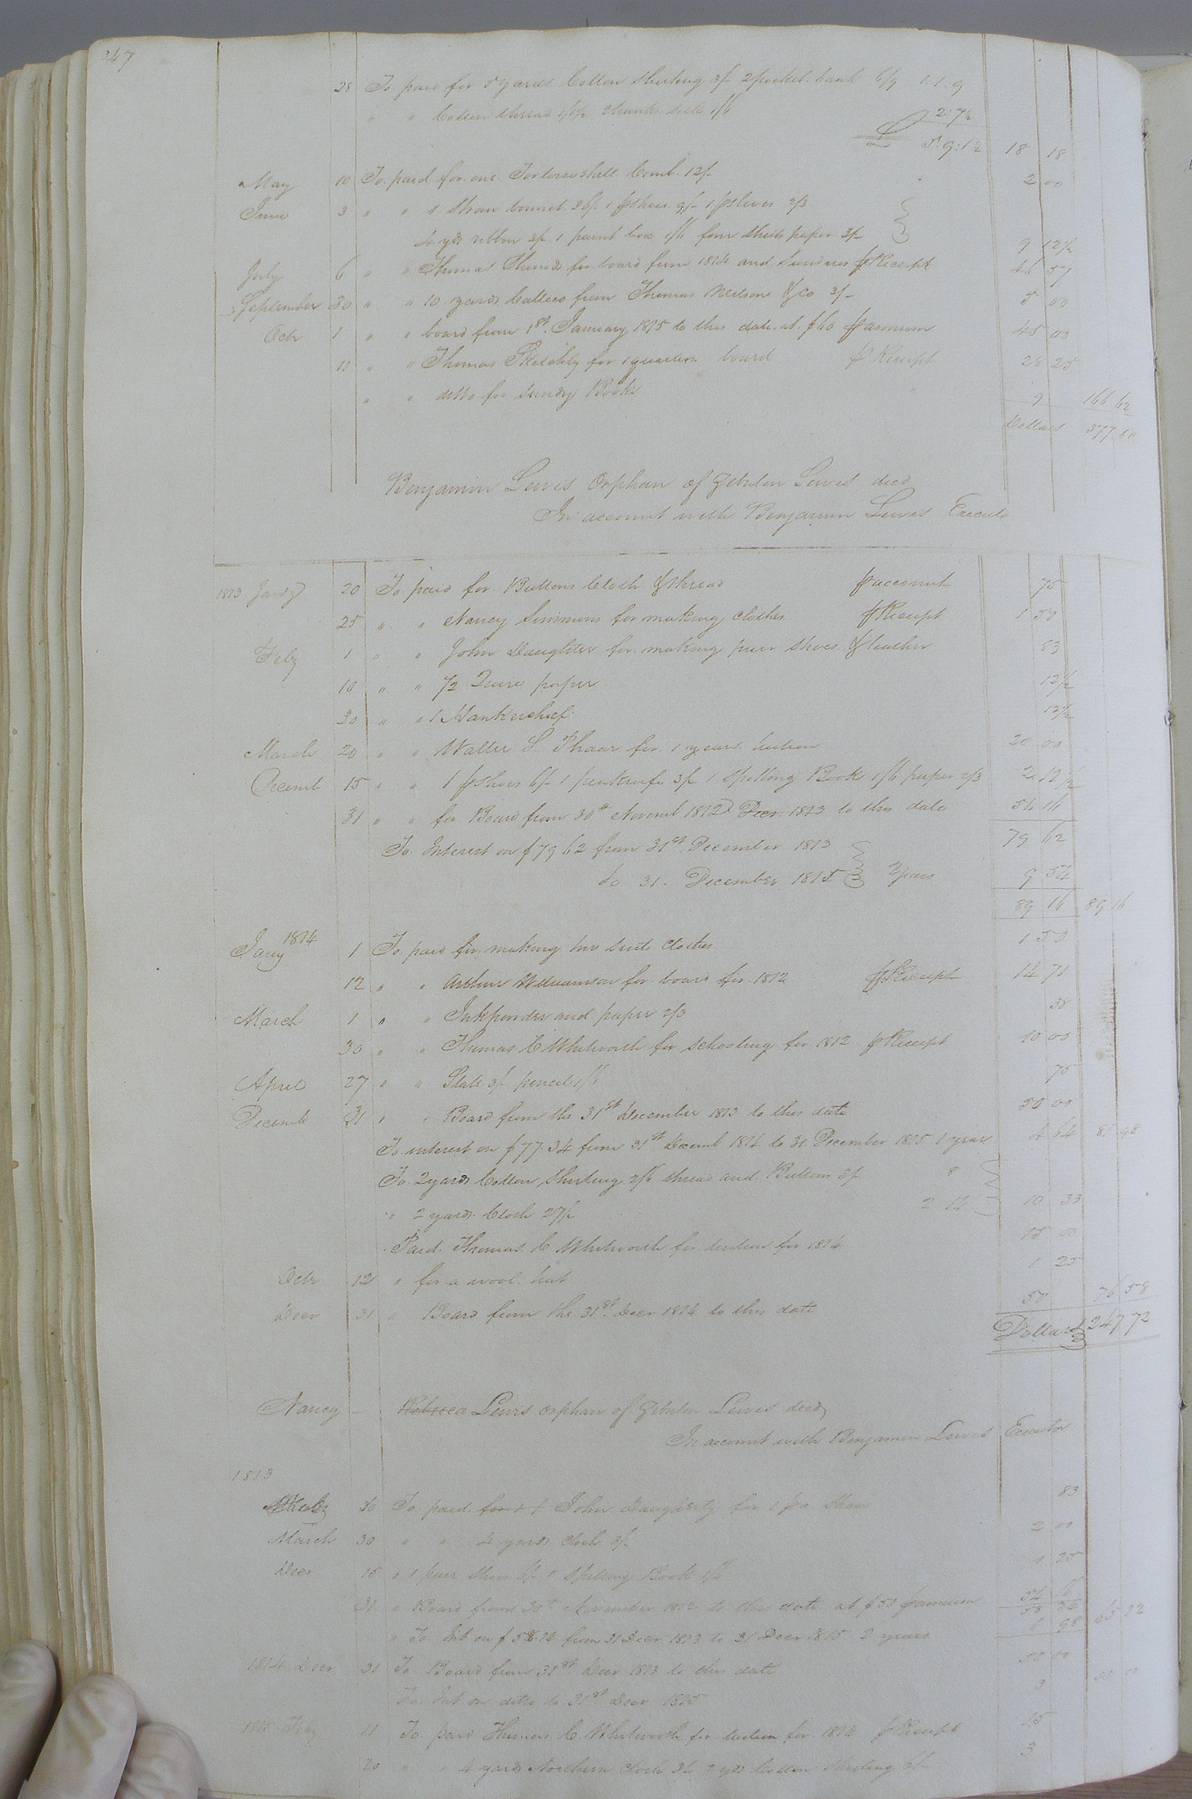 247
28 To paid for 5 yards Cotton Shirting 3/ 2 pocket hank 6/9 1.1.9
" " Cotton thread 1/1½ 1/6 2.7½
£ 5:9:1½ 18 18
May 10 To paid for one Tortoiseshell Comb 12/ 2 00
June 3 " " 1 Straw bonnet 36/ 1 pr Shoes 9/ 1 pr Gloves 2/3
4 yds ribbon 3/ 1 paint box 1/6 four sheets paper 3/ 9 12½
July 6 " " Thomas for board from 1814 and Sundries pr Receipt 44 57
September 30 " " 10 yards Callico from Thomas Nelson & Co 3/ 5 00
Octr 1 " " board from 1st January 1815 to this date at $60 pr annum 45 00
11 " " Thomas for 1 quarters board pr Receipt 28 25
" " ditto for Sundry Books 9 166 62
Dollars 377 80
Benjamin Lewis Orphan of Zebulon Lewis decd
In account with Benjamin Lewis Executr
1813 Jany 20 To paid for Buttons Cloth & thread pr account 75
25 " " Nancy Simmons for making clothes pr Receipt 1 50
Feby 1 " " John Daughtey for making pair Shoes & leather 83
10 " " ½ Quire paper 12½
20 " " 1 Hankerchief 12½
March 20 " " Walter S. for 1 years tuition 20 00
Decemb 15 " " 1 pr Shoes 6/ 1 penknife 3/ 1 Spelling Book 1/6 paper 2/3 2 12½
31 " " for Board from 30th Novemb 1812 Decr 1813 to this date 54 16
79 62
To Interest on $79 62 from 31st December 1813
to 31. December 1815 2 years 9 54
89 16 89 16
Jany 1814 1 To paid for making two suits Clothes 1 50
12 " " Arthur Williamson for board for 1812 pr Receipt 14 71
March 1 " " Inkpowder and paper 2/3 38
30 " " Thomas C Whitworth for schooling for 1812 pr Receipt 10 00
April 27 " " Slate 3/ pencil 1/6 75
Decemb 31 " " Board from the 31st December 1813 to this date 50 00
To interest on $77.34 from 31st Decemb 1814 to 31 December 1815 1 year 4 64 81 98
To 2 yards Cotton Shirting 2/6 thread and Buttons 3/ 8
" 2 yards Cloth 27/ 2 14 10 33
Paid Thomas C Whitworth for tuition for 1814 15 00
Octr 12 " for a wool hat 1 25
Decr 31 " Board from the 31st Decr 1814 to this date 50 76 58
Dollars 247 72
Nancy Lewis orphan of Zebulon Lewis decd
In account with Benjamin Lewis Executor
1813
Feby 30 To paid John Daughtey for 1 pr Shoes 83
March 30 " " 4 yards Cloth 3/ 2 00
Decr 15 " 1 pair Shoes 6/ 1 Spelling Book 1/6 1 25
31 " Board from 30th November 1812 to this date at $50 pr annum 54 16
" To Int on from 31 Decr 1813 to 31 Decr 1815 2 years
1814 Decr 31 To Board from 31st Decr 1813 to this date 50 00
To Int on ditto to 31st Decr 1815 3
1815 Feby 11 To paid Thomas C Whitworth for tuition for 1814 pr Receipt 15
20 " " 4 yards Northern Cloth 3/ 2 yds Cotton Shirting 3